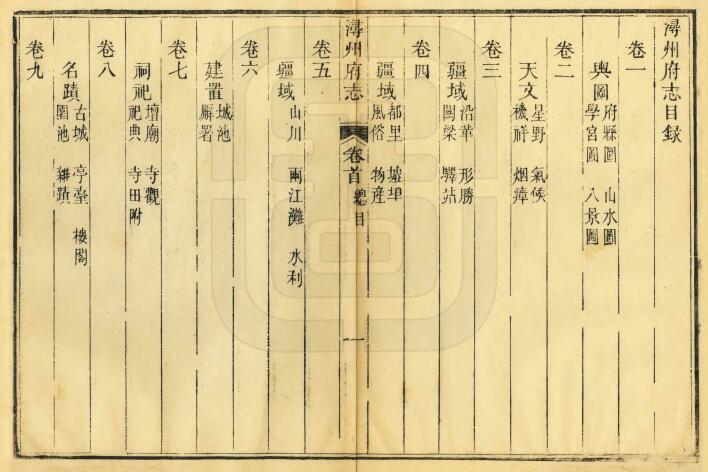 潯州府志目録
卷一
輿圖
府縣圖 山水圖
學宮圖 八景圖
卷二
天文
星野 氣候
禨祥 烟瘴
卷三
疆域
沿革 形勝
關梁 驛站
卷四
疆域
都里 墟埠
風俗 物産
潯州府志
卷首
總目
一
卷五
疆域
山川 兩江灘 水利
卷六
建置
城池
廨署
卷七
祠祀
壇廟 寺觀
祀典 寺田附
卷八
名蹟
古城 亭臺 樓閣
園池 雜蹟
卷九